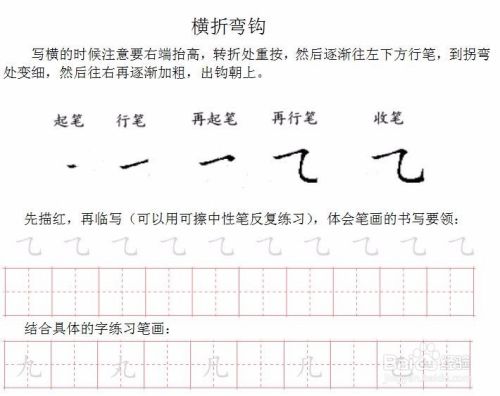 横折弯钩
写横的时候注意要右端抬高，转折处重按，然后逐渐往左下方行笔，到拐弯
处变细，然后往右再逐渐加粗，出钩朝上。
起笔 行笔 再起笔 再行笔 收笔
㇀ 乙 乙
先描红，再临写（可以用可擦中性笔反复练习），体会笔画的书写要领：
乙 乙 乙 乙 乙 乙 乙 乙 乙 乙
结合具体的字练习笔画：
九 丸 凡 几
Baidu经验